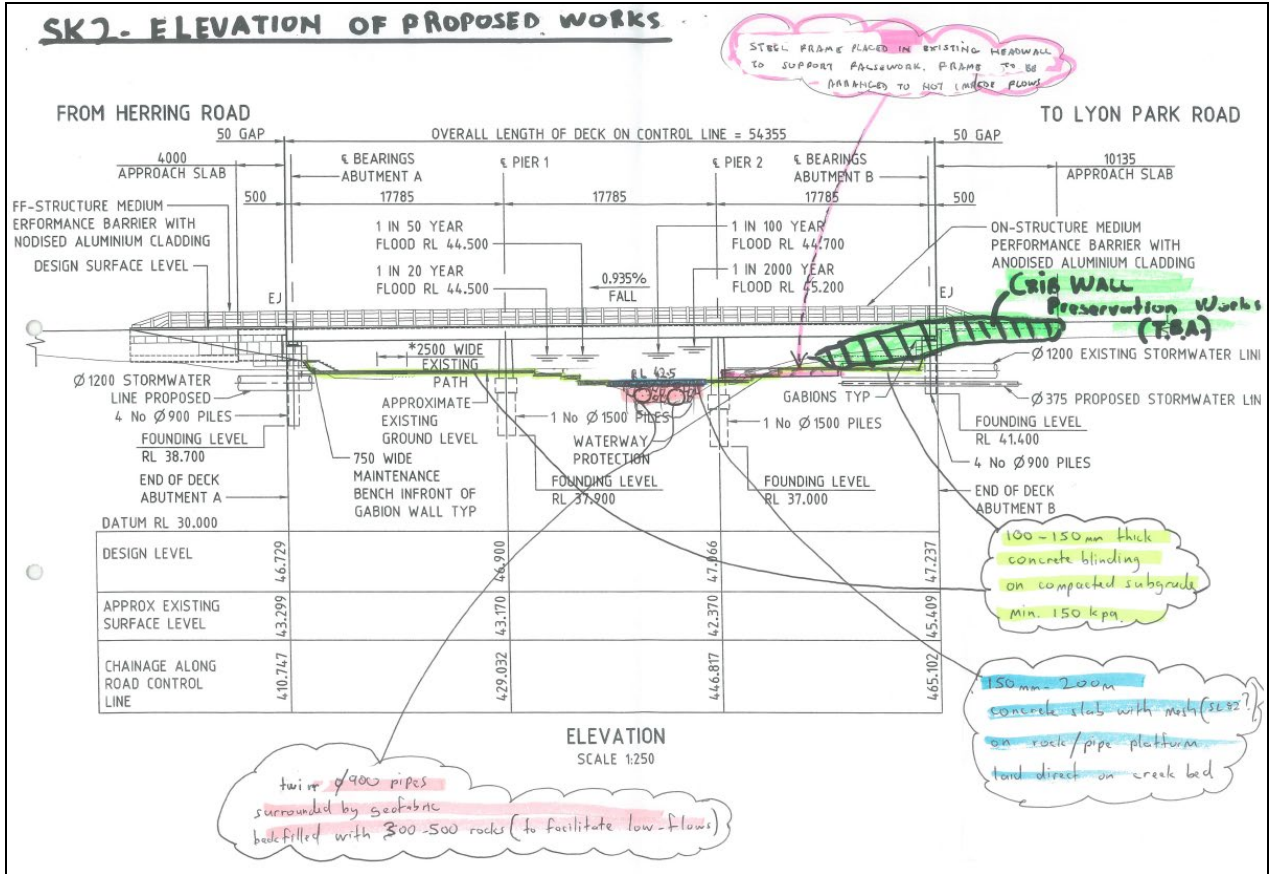 SK2- ELEVATION OF PROPOSED WORKS
STEEL FRAME PLACED IN EXISTING HEADWALL
TO SUPPORT FALSEWORK, FRAME TO BE
ARRANGED TO NOT IMPEDE FLOWS
FROM HERRING ROAD
TO LYON PARK ROAD
50 GAP
OVERALL LENGTH OF DECK ON CONTROL LINE = 54355
50 GAP
4000
APPROACH SLAB
℄ BEARINGS
ABUTMENT A
℄ PIER 1
℄ PIER 2
℄ BEARINGS
ABUTMENT B
10135
APPROACH SLAB
500
17785
17785
17785
500
FF-STRUCTURE MEDIUM
ERFORMANCE BARRIER WITH
NODISED ALUMINIUM CLADDING
DESIGN SURFACE LEVEL
1 IN 50 YEAR
FLOOD RL 44.500
1 IN 20 YEAR
FLOOD RL 44.500
1 IN 100 YEAR
FLOOD RL 44.700
1 IN 2000 YEAR
FLOOD RL 45.200
0.935%
FALL
ON-STRUCTURE MEDIUM
PERFORMANCE BARRIER WITH
ANODISED ALUMINIUM CLADDING
EJ
EJ
CRIB WALL
Preservation Works
(T.B.A.)
*2500 WIDE
EXISTING
PATH
RL 42.5
Ø1200 EXISTING STORMWATER LINI
Ø1200 STORMWATER
LINE PROPOSED
4 No Ø900 PILES
FOUNDING LEVEL
RL 38.700
END OF DECK
ABUTMENT A
APPROXIMATE
EXISTING
GROUND LEVEL
750 WIDE
MAINTENANCE
BENCH INFRONT OF
GABION WALL TYP
1 No Ø1500 PILES
WATERWAY
PROTECTION
FOUNDING LEVEL
RL 37.900
GABIONS TYP
1 No Ø1500 PILES
FOUNDING LEVEL
RL 37.000
Ø375 PROPOSED STORMWATER LIN
FOUNDING LEVEL
RL 41.400
4 No Ø900 PILES
END OF DECK
ABUTMENT B
DATUM RL 30.000
DESIGN LEVEL
46.729
46.900
47.066
47.237
APPROX EXISTING
SURFACE LEVEL
43.299
43.170
42.370
45.409
CHAINAGE ALONG
ROAD CONTROL
LINE
410.747
429.032
446.817
465.102
100-150mm thick
concrete blinding
on compacted subgrade
min. 150 kpa.
150mm-200m
concrete slab with mesh (SL82?)
on rock/pipe platform
laid direct on creek bed
ELEVATION
SCALE 1:250
twin ø900 pipes
surrounded by geofabric
backfilled with 300-500 rocks (to facilitate low-flows)